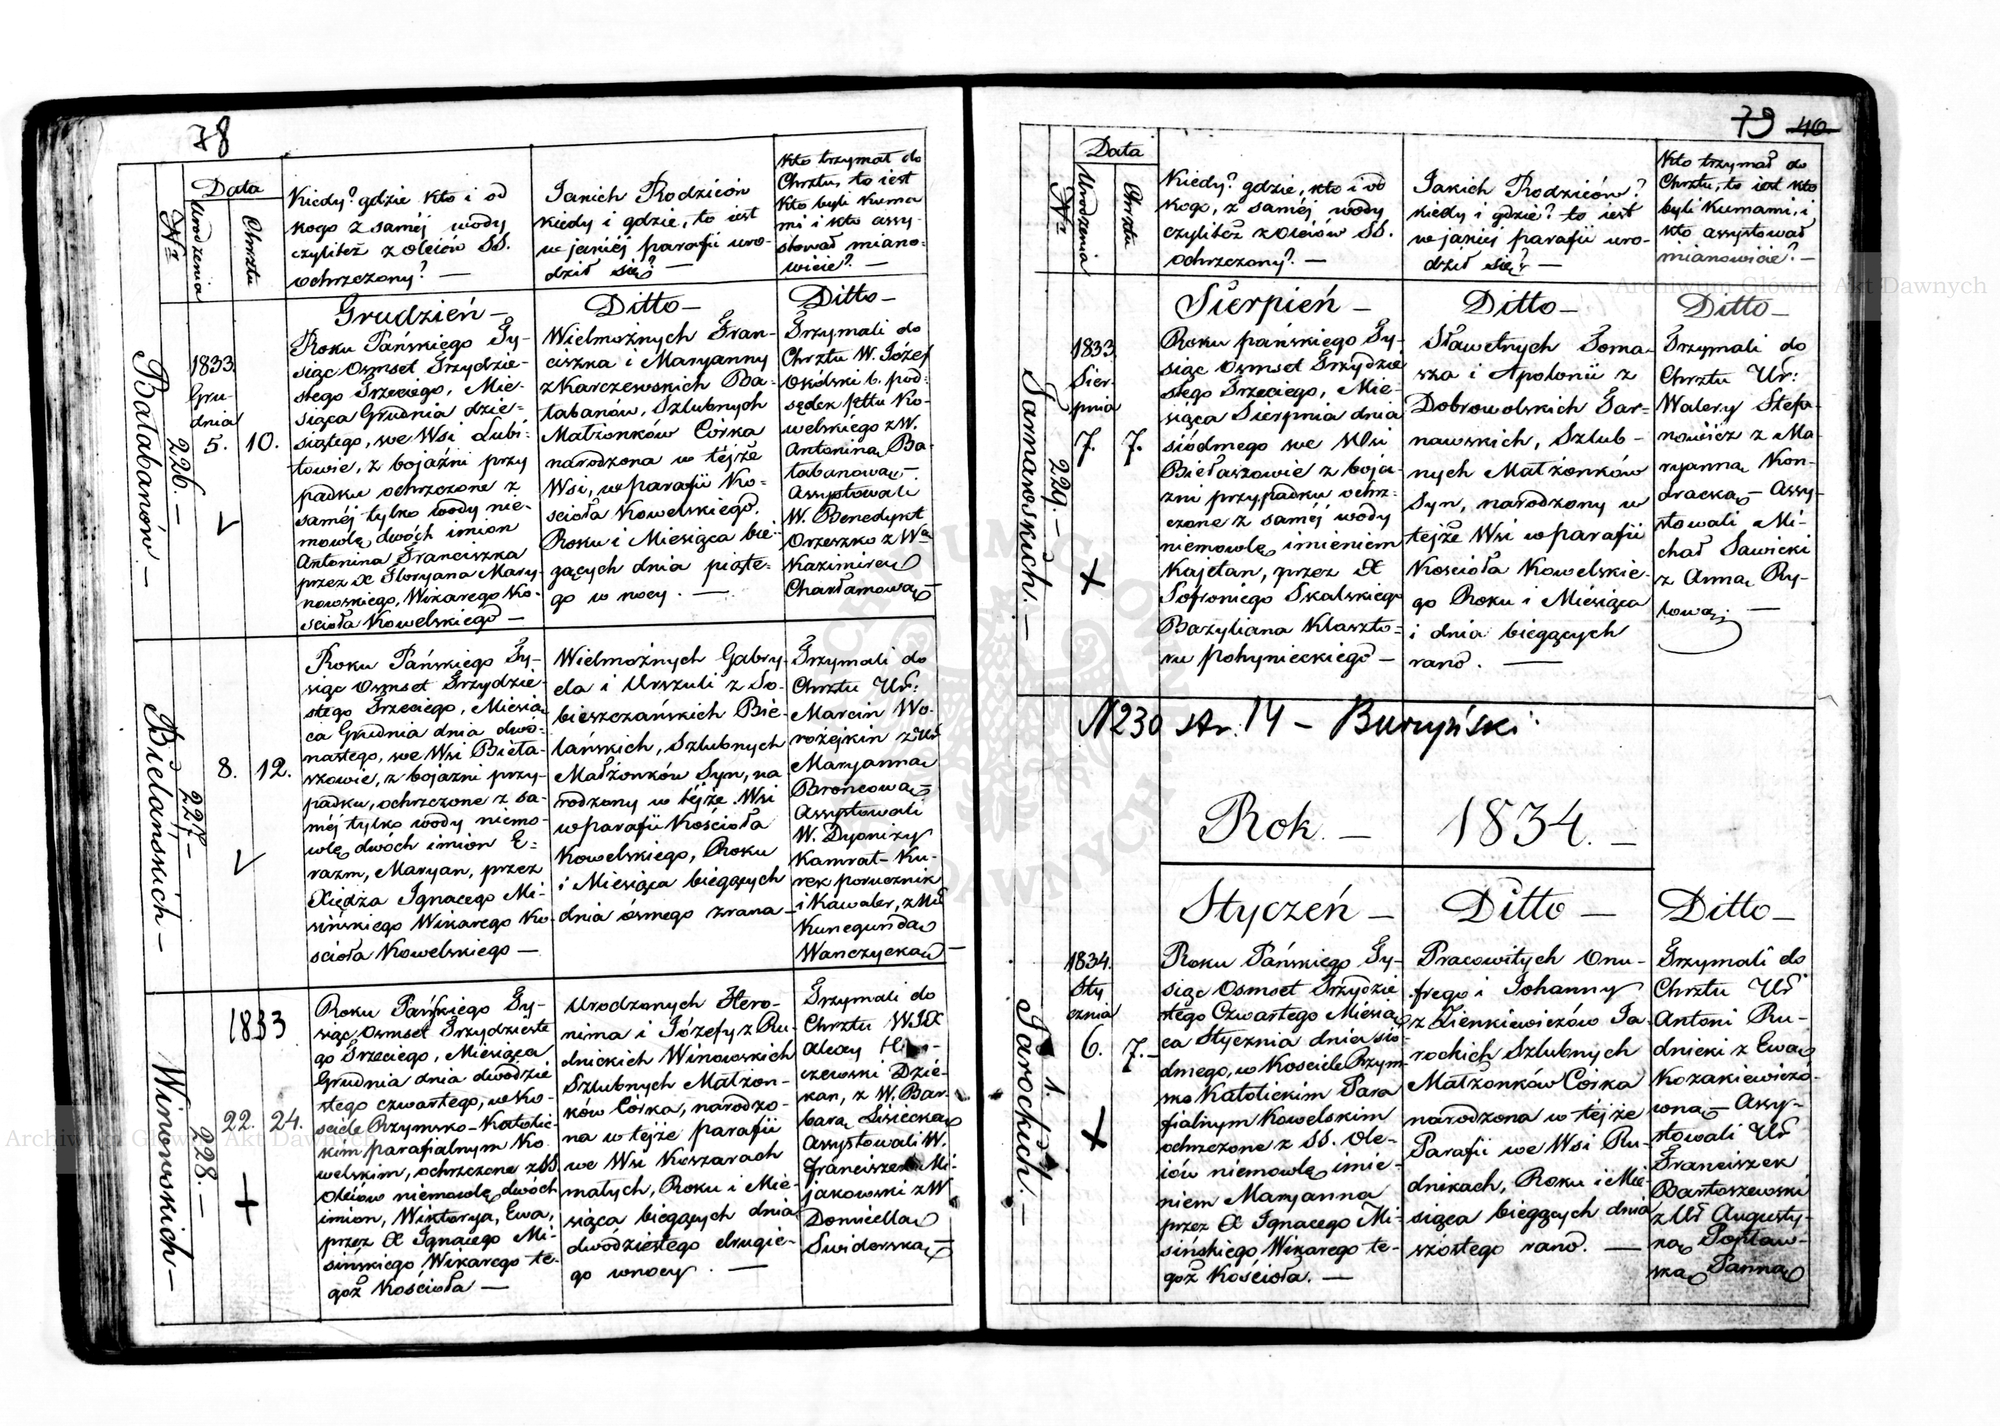 78
Data
Nr
Urodzenia
Chrztu
Kiedy? gdzie kto i od
kogo z saméj wody
czyliteż z oleiów SS.
ochrzczony? —
Jakich Rodziców
kiedy i gdzie, to iest
w jakiéj parafii uro-
dził się? —
Kto trzymał do
Chrztu, to iest
Kto byli Kuma
mi i kto assy-
stował miano-
wicie? —
Bałabanów —
226. —
1833
Gru
dnia
5.
10.
Grudzień —
Roku Pańskiego Ty-
siąc Osmset Trzydzie-
stego Trzeciego, Mie-
siąca Grudnia dzie-
siątego, we Wsi Lubi-
towie, z bojaźni przy
padku ochrzczone z
saméj tylko wody nie-
mowlę dwóch imion
Antonina Franciszka
przez X Floryana Mary-
nowskiego, Wikarego Ko-
scioła Kowelskiego —
Ditto —
Wielmożnych Fran-
ciszka i Maryanny
z Karczewskich Ba-
łabanów, Szlubnych
Małżonków Córka
narodzona w téjże
Wsi, w parafii Ko-
scioła Kowelskiego.
Roku i Miesiąca bie-
gących dnia piąte-
go w nocy. —
Ditto —
Trzymali do
Chrztu W. Józef
Okólski b. pod-
sędek pttu Ko-
welskiego z W.
Antoniną Ba-
łabanową —
Assystowali
W. Benedykt
Orzeszko z Wą
Kazimirą
Charłamową —
Bielańskich —
227. —
8.
12.
Roku Pańskiego Ty-
siąc Osmset Trzydzie-
stego Trzeciego, Miesią
ca Grudnia dnia dwó-
nastego, we Wsi Bieła-
szowie, z bojazni przy-
padku, ochrzczone z sa-
méj tylko wody niemo-
wlę dwóch imion E-
razm, Maryan, przez
Xiędza Ignacego Mi-
sińskiego Wikarego Ko-
scioła Kowelskiego —
Wielmożnych Gabry-
ela i Urszuli z So-
bieszczańskich Bie-
lańskich, Szlubnych
Małżonków Syn, na
rodzony w téjże Wsi
w parafii Kościoła
Kowelskiego, Roku
i Miesiąca biegących
dnia ósmego zrana —
Trzymali do
Chrztu Ur:
Marcin Wo-
rożejkin z Ur
Maryanną
Brońcową —
Assystowali
W. Dyonizy
Kamrat- Ku-
rek porucznik
i Kawaler, z Ur
Kunegundą
Wanczycką —
Winowskich —
228. —
1833
22.
24.
Roku Pańskiego Ty-
siąc Osmset Trzydzieste
go Trzeciego, Miesiąca
Grudnia dnia dwódzie
stego czwartego, w Ko-
sciele Rzymsko-Katolic-
kim parafialnym Ko
welskim, ochrzczone z SS
Oleiów niemowlę dwóch
imion, Wiktorya, Ewa,
przez X Ignacego Mi-
sińskiego, Wikarego te-
goż Kościoła —
Urodzonych Hero-
nima i Józefy z Ru-
dnickich Winowskich
Szlubnych Małżon-
ków Córka, narodzo-
na w téjże parafii
we Wsi Koszarach
małych, Roku i Mie-
siąca biegących dnia
dwódziestego drugie-
go w nocy. —
Trzymali do
Chrztu
czewski Dzie-
kan, z W. Bar-
barą Lisiecką
Assystowali W.
Franciszek Mi-
jakowski z W
Domicellą
Swiderską —
79 40
Data
Nr
Urodzenia
Chrztu
Kiedy? gdzie, kto i od
kogo, z saméj wody
czyliteż z oleiów SS.
ochrzczony? —
Jakich Rodziców?
kiedy i gdzie? to iest
w jakiéj parafii uro-
dził się? —
Kto trzymał do
Chrztu, to iest kto
byli Kumami, i
kto assystował
mianowicie? —
Tarnawskich. —
229. —
1833
Sier-
pnia
7.
7.
Sierpień —
Roku pańskiego Ty-
siąc Osmset Trzydzie
stego Trzeciego, Mie-
siąca Sierpnia dnia
siódmego we Wsi
Biełaszowie z boja-
zni przypadku ochrz-
czone z saméj wody
niemowlę imieniem
Kajetan, przez X
Sofroniego Skalskiego
Bazyliana Klaszto-
ru pohynieckiego —
Ditto —
Sławetnych Toma-
sza i Apolonii z
Dobrowolskich Tar-
nawskich, Szlub-
nych Małżonków
Syn, narodzony w
tejże Wsi w parafii
Kościoła Kowelskie-
go Roku i Miesiąca
i dnia biegących
rano. —
Ditto —
Trzymali do
Chrztu Ur:
Walery Stefa-
nowicz z Ma-
ryanną Kon-
dracką — Assy-
stowali Mi-
chał Sawicki
z Anną Ry-
łową. —
N230 str. 14 — Buczyński
Rok. — 1834. —
Jarockich. —
1.
1834.
Sty
cznia
6.
7. —
Styczeń —
Roku Pańskiego Ty-
siąc Osmset Trzydzie
stego Czwartego Miesią
ca Stycznia dnia sió-
dmego, w Kosciele Rzym
sko Katolickim Para
fialnym Kowelskim
ochrzczone z SS. Ole-
iów niemowlę imie-
niem Maryanna
przez X Ignacego Mi-
sińskiego Wikarego te-
goż Kościoła. —
Ditto —
Pracowitych Onu-
frego i Johanny
z Zienkiewiczów Ja-
rockich Szlubnych
Małżonków Córka
narodzona w téjże
Parafii we Wsi Ru-
dnikach, Roku i Mie-
siąca biegących dnia
szóstego rano. —
Ditto —
Trzymali do
Chrztu Ur
Antoni Ru-
dnicki z Ewą
Kozakiewiczó-
wną — Assy-
stowali Ur
Franciszek
Bartoszewski
z Ur Augusty-
ną Popław-
ską Panną
Archiwum Główne Akt Dawnych
Archiwum Główne Akt Dawnych